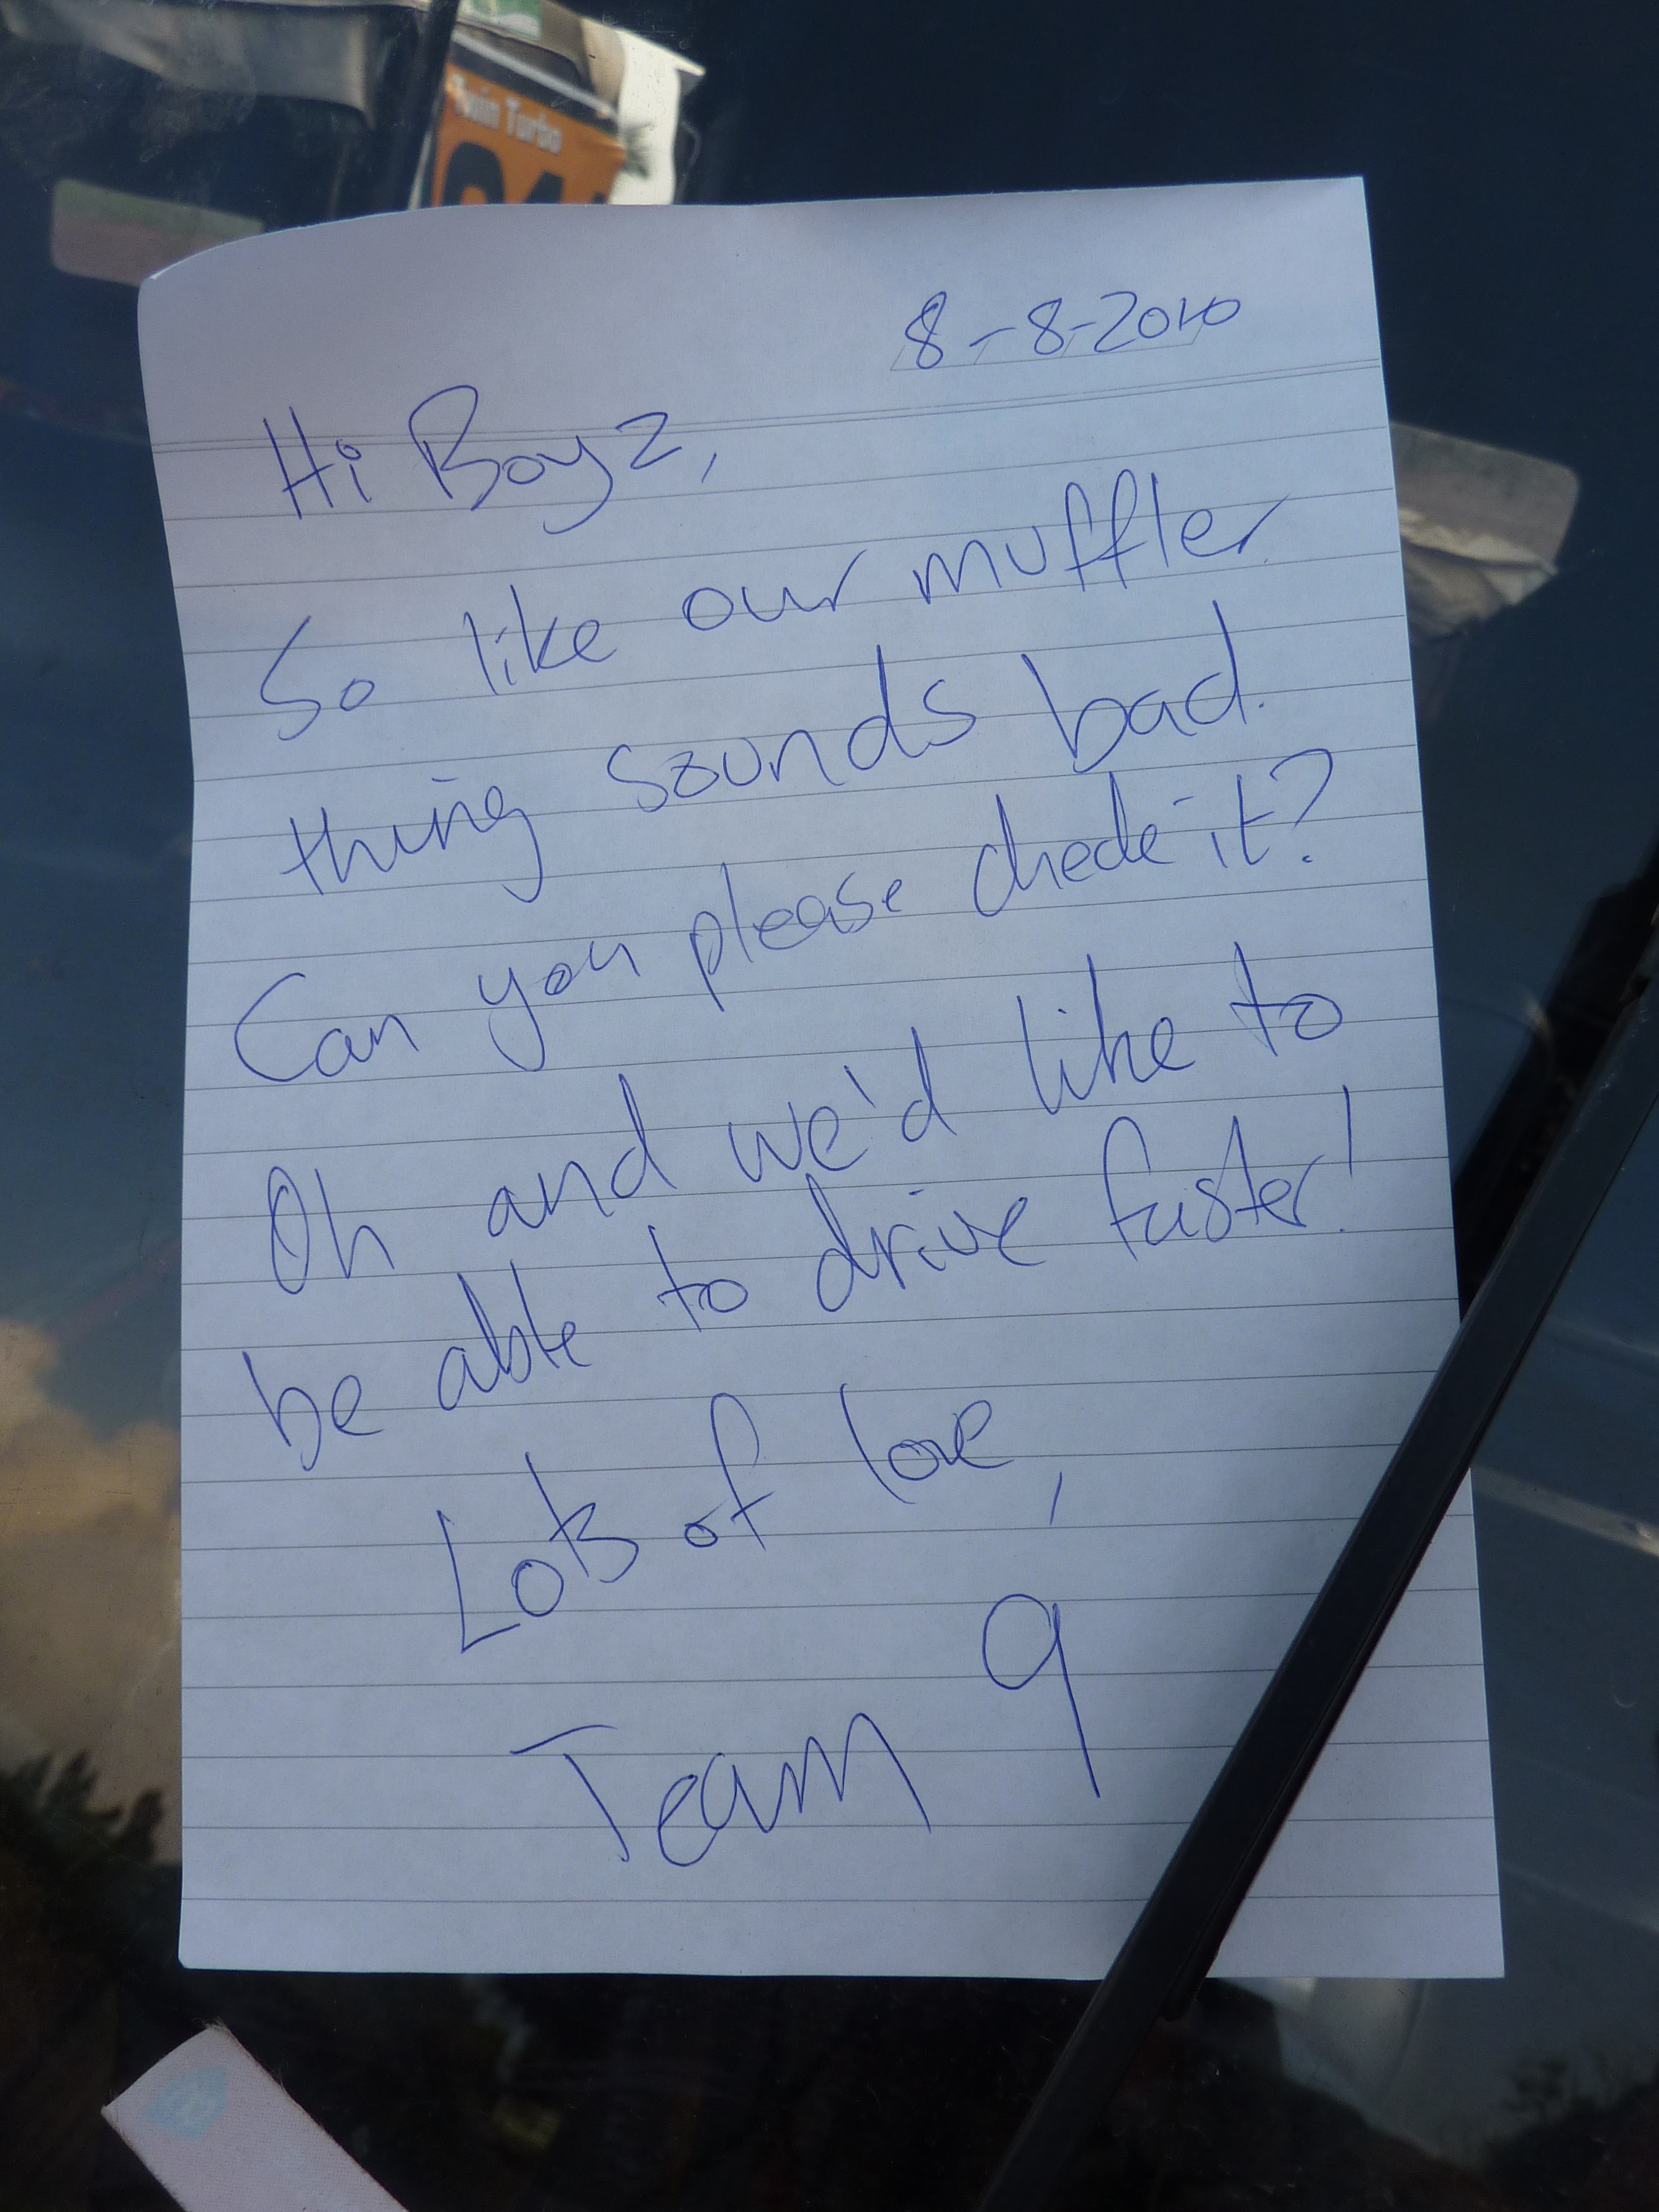 Twin Turbo
8-8-2010
Hi Boyz,
So like our muffler
thing sounds bad.
Can you please check it?
Oh and we'd like to
be able to drive faster!
Lots of love,
Team 9